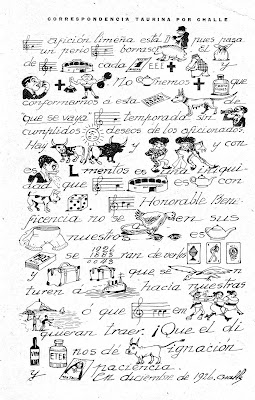 CORRESPONDENCIA TAURINA POR CHALLE
afición limeña está pues pasa
un perio borrasc El
de cada + y
+ No hemos + que
conformarnos a esta de
"que se vaya" temporada sin
cumplidos deseos de los aficionados.
Hay y y con
es L mentos es una iniqui
dad que es con
Honorable Bene
ficencia no se en sus
nuestros es
y se 1926 ran de verlos
y que se n
turen a hacia nuestras
o que em
quieran traer. ¡Que el di
nos dé ignación
y paciencia.
En diciembre de 1926. Challe